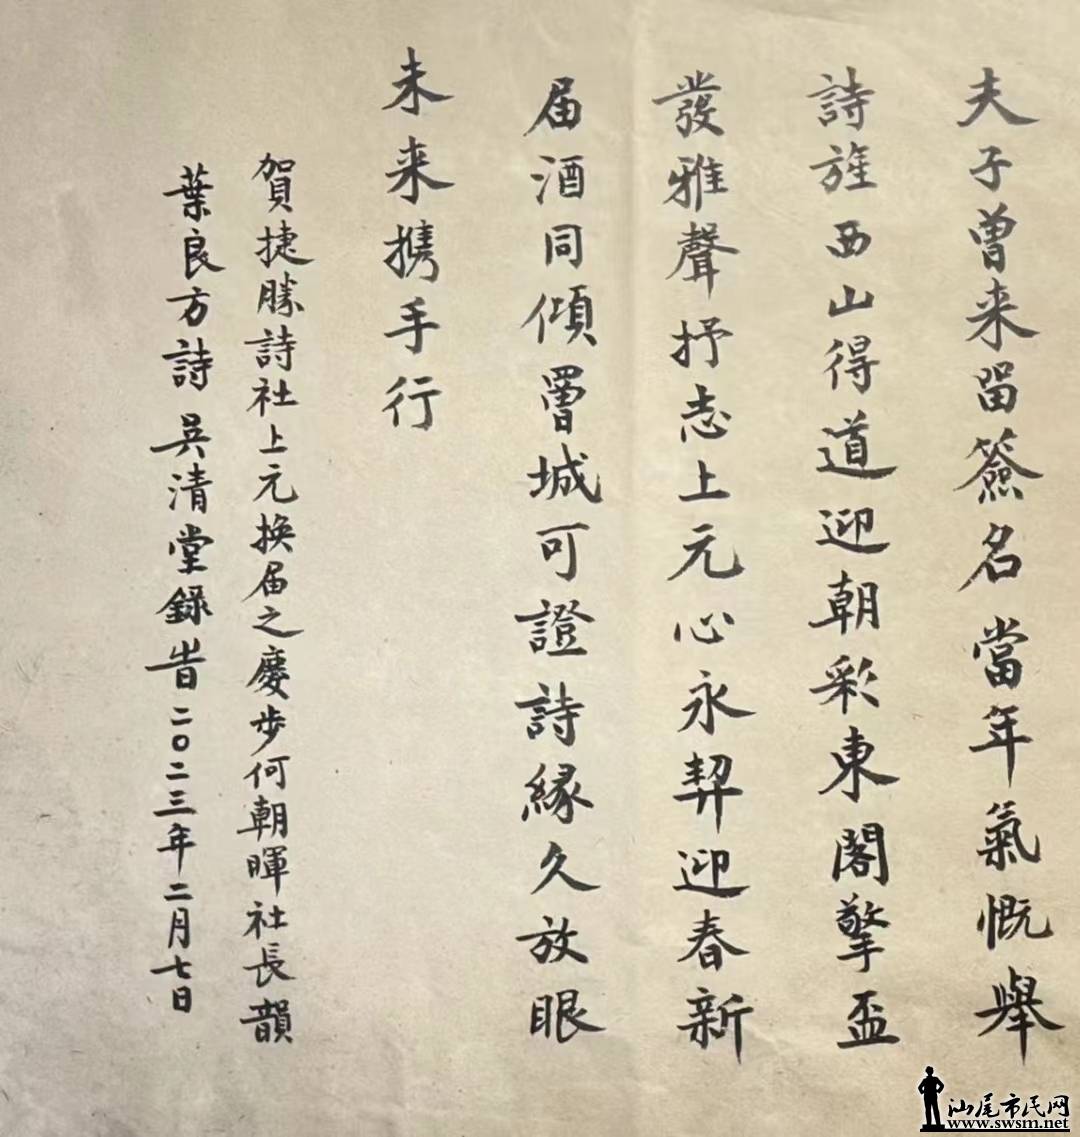 夫子曾来留簽名當年氣慨舉
詩旌西山得道迎朝彩東閣擎盃
發雅聲抒志上元心永契迎春新
届酒同傾曾城可證詩緣久放眼
未来携手行
賀捷勝詩社上元換届之慶步何朝暉社長韻
葉良方詩吴清堂錄旹二〇二三年二月七日
汕尾市民网
www.swsm.net